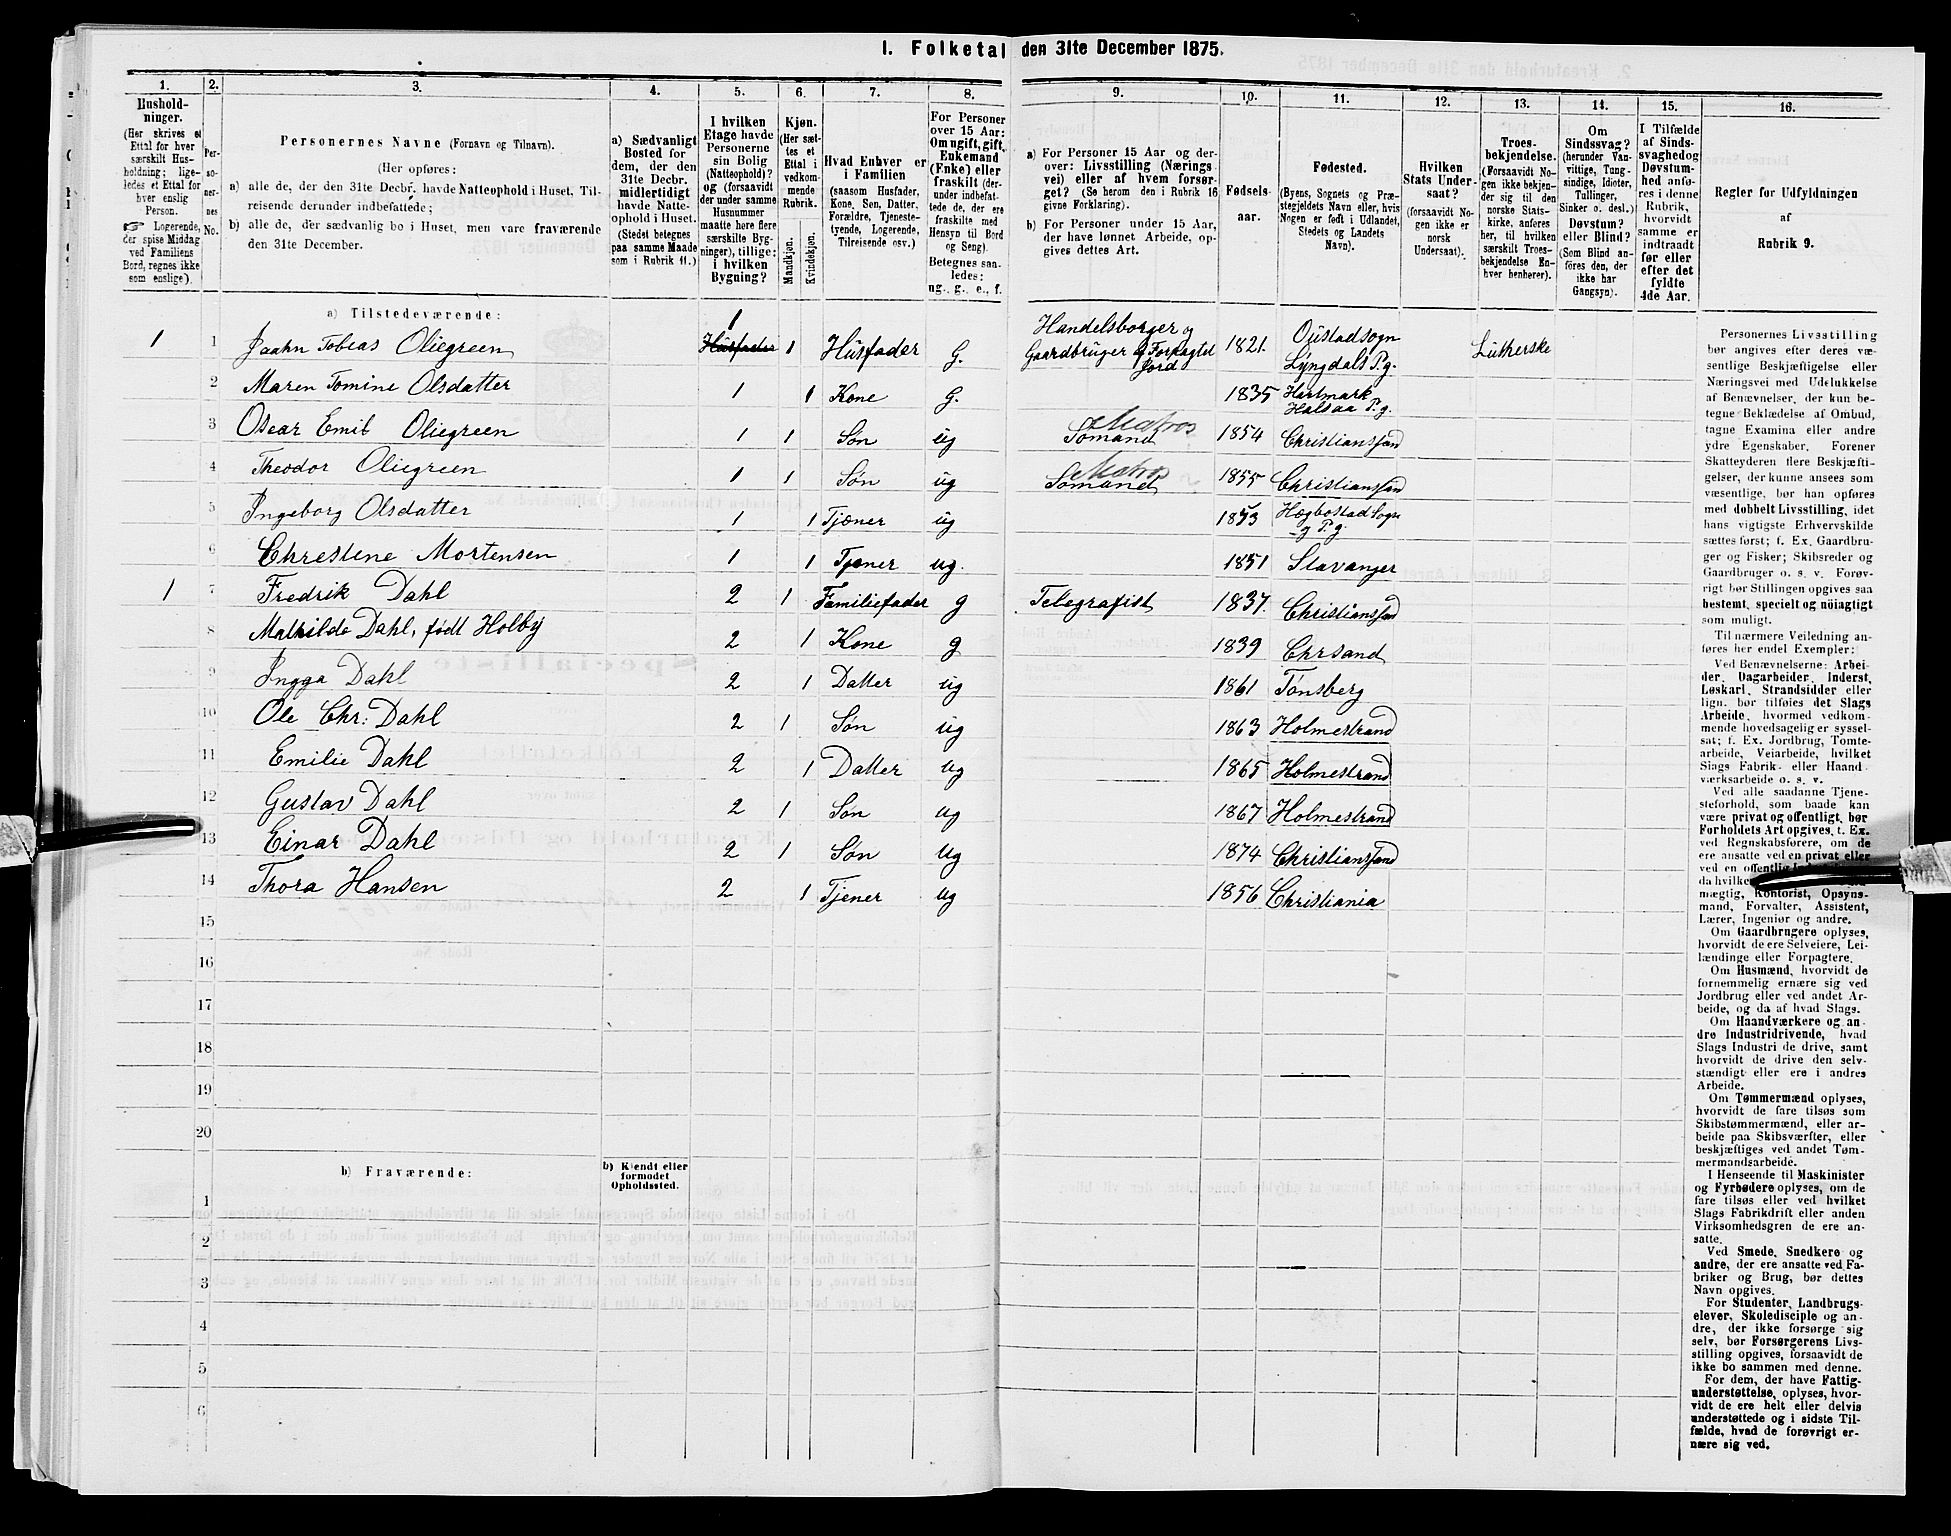 1. Folketal den 31te December 1875.
1. 2. 3. 4. 5. 6. 7. 8. 9. 10. 11. 12. 13. 14. 15. 16.
Hushold-
ninger.
(Her skrives et
Ettal for hver
særskilt Hus-
holdning; lige-
ledes et Ettal for
hver enslig
Person.
☞ Logerende,
der spise Middag
ved Familiens
Bord, regnes ikke
som enslige).
Per-
so-
ner-
nes
No.
Personernes Navne (Fornavn og Tilnavn).
(Her opføres:
a) alle de, der den 31te Decbr. havde Natteophold i Huset, Til-
reisende derunder indbefattede;
b) alle de, der sædvanlig bo i Huset, men vare fraværende
den 31te December.
a) Sædvanligt
Bosted for
dem, der den
31te Decbr.
midlertidigt
havde Natte-
ophold i Huset.
(Stedet betegnes
paa samme Maade
som i Rubrik 11.)
I hvilken
Etage havde
Personerne
sin Bolig
(Natteophold)?
og (forsaavidt
der under samme
Husnummer
maatte høre flere
særskilte Byg-
ninger), tillige:
i hvilken
Bygning?
Kjøn.
(Her sæt-
tes et
Ettal i
vedkom-
mende
Rubrik.
Mandkjøn.
Kvindekjøn.
Hvad Enhver er
i Familien
(saasom Husfader,
Kone, Søn, Datter,
Forældre, Tjeneste-
tyende, Logerende,
Tilreisende osv.)
For Personer
over 15 Aar:
Om ugift, gift,
Enkemand
(Enke) eller
fraskilt (der-
under indbefat-
tede de, der ere
fraskilte med
Hensyn til Bord
og Seng).
Betegnes saa-
ledes:
ug., g., e., f.
a) For Personer 15 Aar og der-
over: Livsstilling (Nærings-
vei) eller af hvem forsør-
get? (Se herom den i Rubrik 16
givne Forklaring).
b) For Personer under 15 Aar,
der have lønnet Arbeide, op-
gives dettes Art.
Fødsels-
aar.
Fødested.
(Byens, Sognets og Præ-
stegjeldets Navn eller, hvis
Nogen er født i Udlandet,
Stedets og Landets
Navn).
Hvilken
Stats Under-
saat?
(forsaavidt No-
gen ikke er
norsk
Undersaat).
Troes-
bekjendelse.
(Forsaavidt No-
gen ikke bekjen-
der sig til den
norske Stats-
kirke, anføres
her, til hvilken
særskilt Troes-
bekjendelse En-
hver henhører).
Om
Sindssvag?
(herunder Van-
vittige, Tung-
sindige, Idioter,
Tullinger,
Sinker o. desl.)
Døvstum?
eller Blind?
(Som Blind an-
føres den, der
ikke har
Gangsyn).
I Tilfælde
af Sinds-
svaghed og
Døvstum-
hed anfø-
res i denne
Rubrik,
hvorvidt
samme er
indtraadt
før eller
efter det
fyldte
4de Aar.
Regler for Udfyldningen
af
Rubrik 9.
a) Tilstedeværende:
1 1 Jaahn Tobias Oliegreen 1 Husfader 1 Husfader G. Handelsborger og Gaardbruger af Forpagtet Jord 1821. Oustadsogn Lyngdals P.g. Lutherske
2 Maren Tomine Olsdatter 1 1 Kone G. 1835 Hartmark Halsaa P.g.
3 Oscar Emil Oliegreen 1 1 Søn ug Sømand Matros 1854 Christianssand
4 Theodor Oliegreen 1 1 Søn ug Sømand Matros 1855 Christianssand
5 Ingeborg Olsdatter 1 1 Tjener ug 1853 Hægbostad Sogn og P.g.
6 Chrestene Mortensen 1 1 Tjener ug. 1851 Stavanger
1 7 Fredrik Dahl 2 1 Familiefader g Telegrafist 1837. Christianssand
8 Mathilde Dahl, født Holby 2 1 Kone g 1839 Chrsand
9 Ingga Dahl 2 1 Datter ug 1861 Tønsberg
10 Ole Chr: Dahl 2 1 Søn ug 1863 Holmestrand
11 Emilie Dahl 2 1 Datter ug 1865 Holmestrand
12 Gustav Dahl 2 1 Søn ug 1867 Holmestrand
13 Einar Dahl 2 1 Søn ug 1874 Christianssand
14 Thora Hansen 2 1 Tjener ug 1856 Christiania
15
16
17
18
19
20
b) Fraværende:
b) Kjendt eller
formodet
Opholdssted.
1
2
3
4
5
6
Personernes Livsstilling
bør angives efter deres væ-
sentlige Beskjæftigelse eller
Næringsvei med Udelukkelse
af Benævnelser, der kun be-
tegne Beklædelse af Ombud,
tagne Examina eller andre
ydre Egenskaber. Forener
Skatteyderen flere Beskjæfti-
gelser, der kunne ansees som
væsentlige, bør han opføres
med dobbelt Livsstilling, idet
hans vigtigste Erhvervskilde
sættes først; f. Ex. Gaardbru-
ger og Fisker; Skibsreder og
Gaardbruger o. s. v. Forøv-
rigt bør Stillingen opgives saa
bestemt, specielt og nøiagtigt
som muligt.
Til nærmere Veiledning an-
føres her endel Exempler:
Ved Benævnelserne: Arbei-
der, Dagarbeider, Inderst,
Løskarl, Strandsidder eller
lign. bør tilføies det Slags
Arbeide, hvormed vedkom-
mende hovedsagelig er syssel-
sat; f. Ex. Jordbrug, Tomte-
arbeide, Veiarbeide, hvilket
Slags Fabrik- eller Haand-
værksarbeide o. s. v.
Ved alle saadanne Tjene-
steforhold, som baade kan
være privat og offentligt, bør
Forholdets Art opgives, t. Ex.
ved Regnskabsførere, om de
ere ansatte ved en privat eller
ved en offentlig
da hvilke
mægtig, Kontorist, Opsyns-
mand, Forvalter, Assistent,
Lærer, Ingeniør og andre.
Om Gaardbrugere oplyses,
hvorvidt de ere Selveiere, Lei-
lændinge eller Forpagtere.
Om Husmænd, hvorvidt de
fornemmelig ernære sig ved
Jordbrug eller ved andet Ar-
beide, og da af hvad Slags.
Om Haandværkere og an-
dre Industridrivende, hvad
Slags Industri de drive, samt
hvorvidt de drive den selv-
stændigt eller ere i andres
Arbeide.
Om Tømmermænd oplyses,
hvorvidt de fare tilsøs som
Skibstømmermænd, eller ar-
beide paa Skibsværfter, eller
beskjæftiges ved andet Tøm-
mermandsarbeide.
I Henseende til Maskinister
og Fyrbødere oplyses, om de
fare tilsøs eller ved hvilket
Slags Fabrikdrift eller anden
Virksomhedsgren de ere an-
satte.
Ved Smede, Snedkere og
andre, der ere ansatte ved Fa-
briker og Brug, bør dettes
Navn opgives.
For Studenter, Landbrugs-
elever, Skoledisciple og an-
dre, der ikke forsørge sig
selv, bør Forsørgerens Livs-
stilling opgives, forsaavidt de
ikke bo sammen med denne.
For dem, der have Fattig-
understøttelse, oplyses, hvor-
vidt de ere helt eller delvis
understøttede og i sidste Til-
fælde, hvad de forøvrigt er-
nære sig ved.